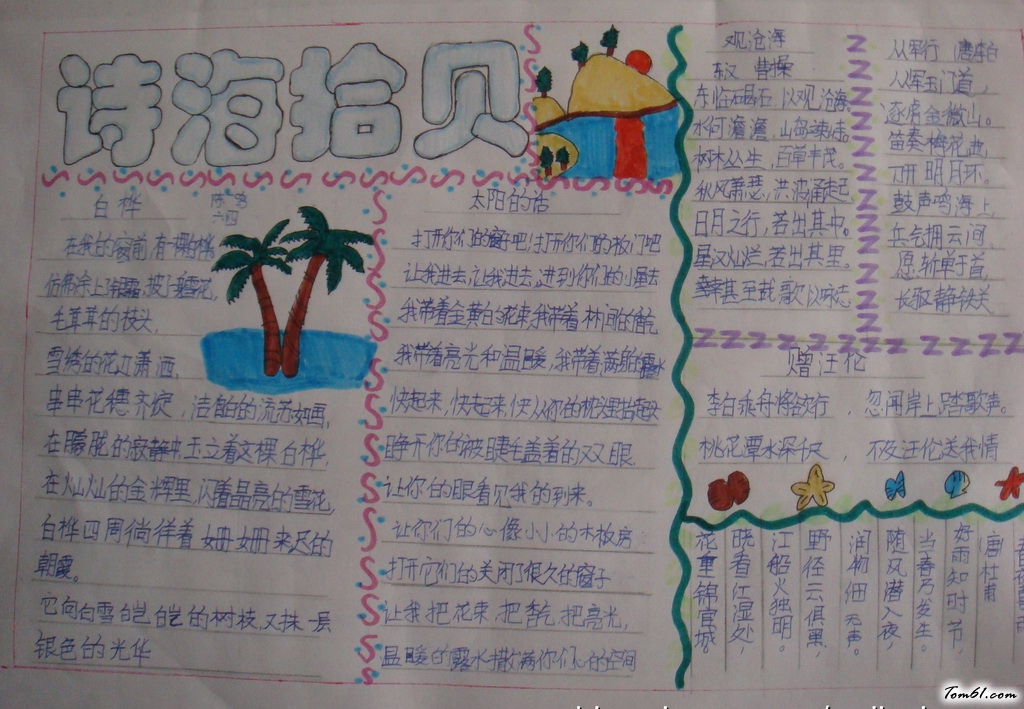 诗海拾贝
白桦
在我的窗前,有一棵白桦
仿佛涂上银霜,披了一身雪花,
毛茸茸的枝头,
雪绣的花边潇洒,
串串花穗齐绽,洁白的流苏如画,
在朦胧的寂静中,玉立着这棵白桦,
在灿灿的金辉里,闪着晶亮的雪花,
白桦四周徜徉着姗姗来迟的
朝霞。
它向白雪皑皑的树枝,又抹一层
银色的光华
太阳的话
打开你们的窗子吧,打开你们的板门吧
让我进去,让我进去,进到你们的小屋去
我带着金黄的花束,我带着林间的香气
我带着亮光和温暖,我带着满身的露水
快起来,快起来,快从你的枕头里抬起头
睁开你的被睫毛盖着的双眼,
让你的眼看见我的到来。
让你们的心像小小的木板房
打开它们的关闭了很久的窗子
让我把花束,把香气,把亮光,
温暖的露水撒满你们心的空间
观沧海
东汉 曹操
东临碣石,以观沧海
水何澹澹,山岛竦峙
树木丛生,百草丰茂。
秋风萧瑟,洪波涌起
日月之行,若出其中。
星汉灿烂,若出其里。
幸甚至哉,歌以咏志
从军行 唐 李白
从军玉门道,
逐虏金微山。
笛奏梅花曲,
刀开明月环。
鼓声鸣海上,
兵气拥云间,
愿斩单于首,
长驱静铁关
赠汪伦
李白乘舟将欲行,忽闻岸上踏歌声。
桃花潭水深千尺,不及汪伦送我情
唐 杜甫
好雨知时节,
当春乃发生。
随风潜入夜,
润物细无声。
野径云俱黑,
江船火独明。
晓看红湿处,
花重锦官城
Tom61.com